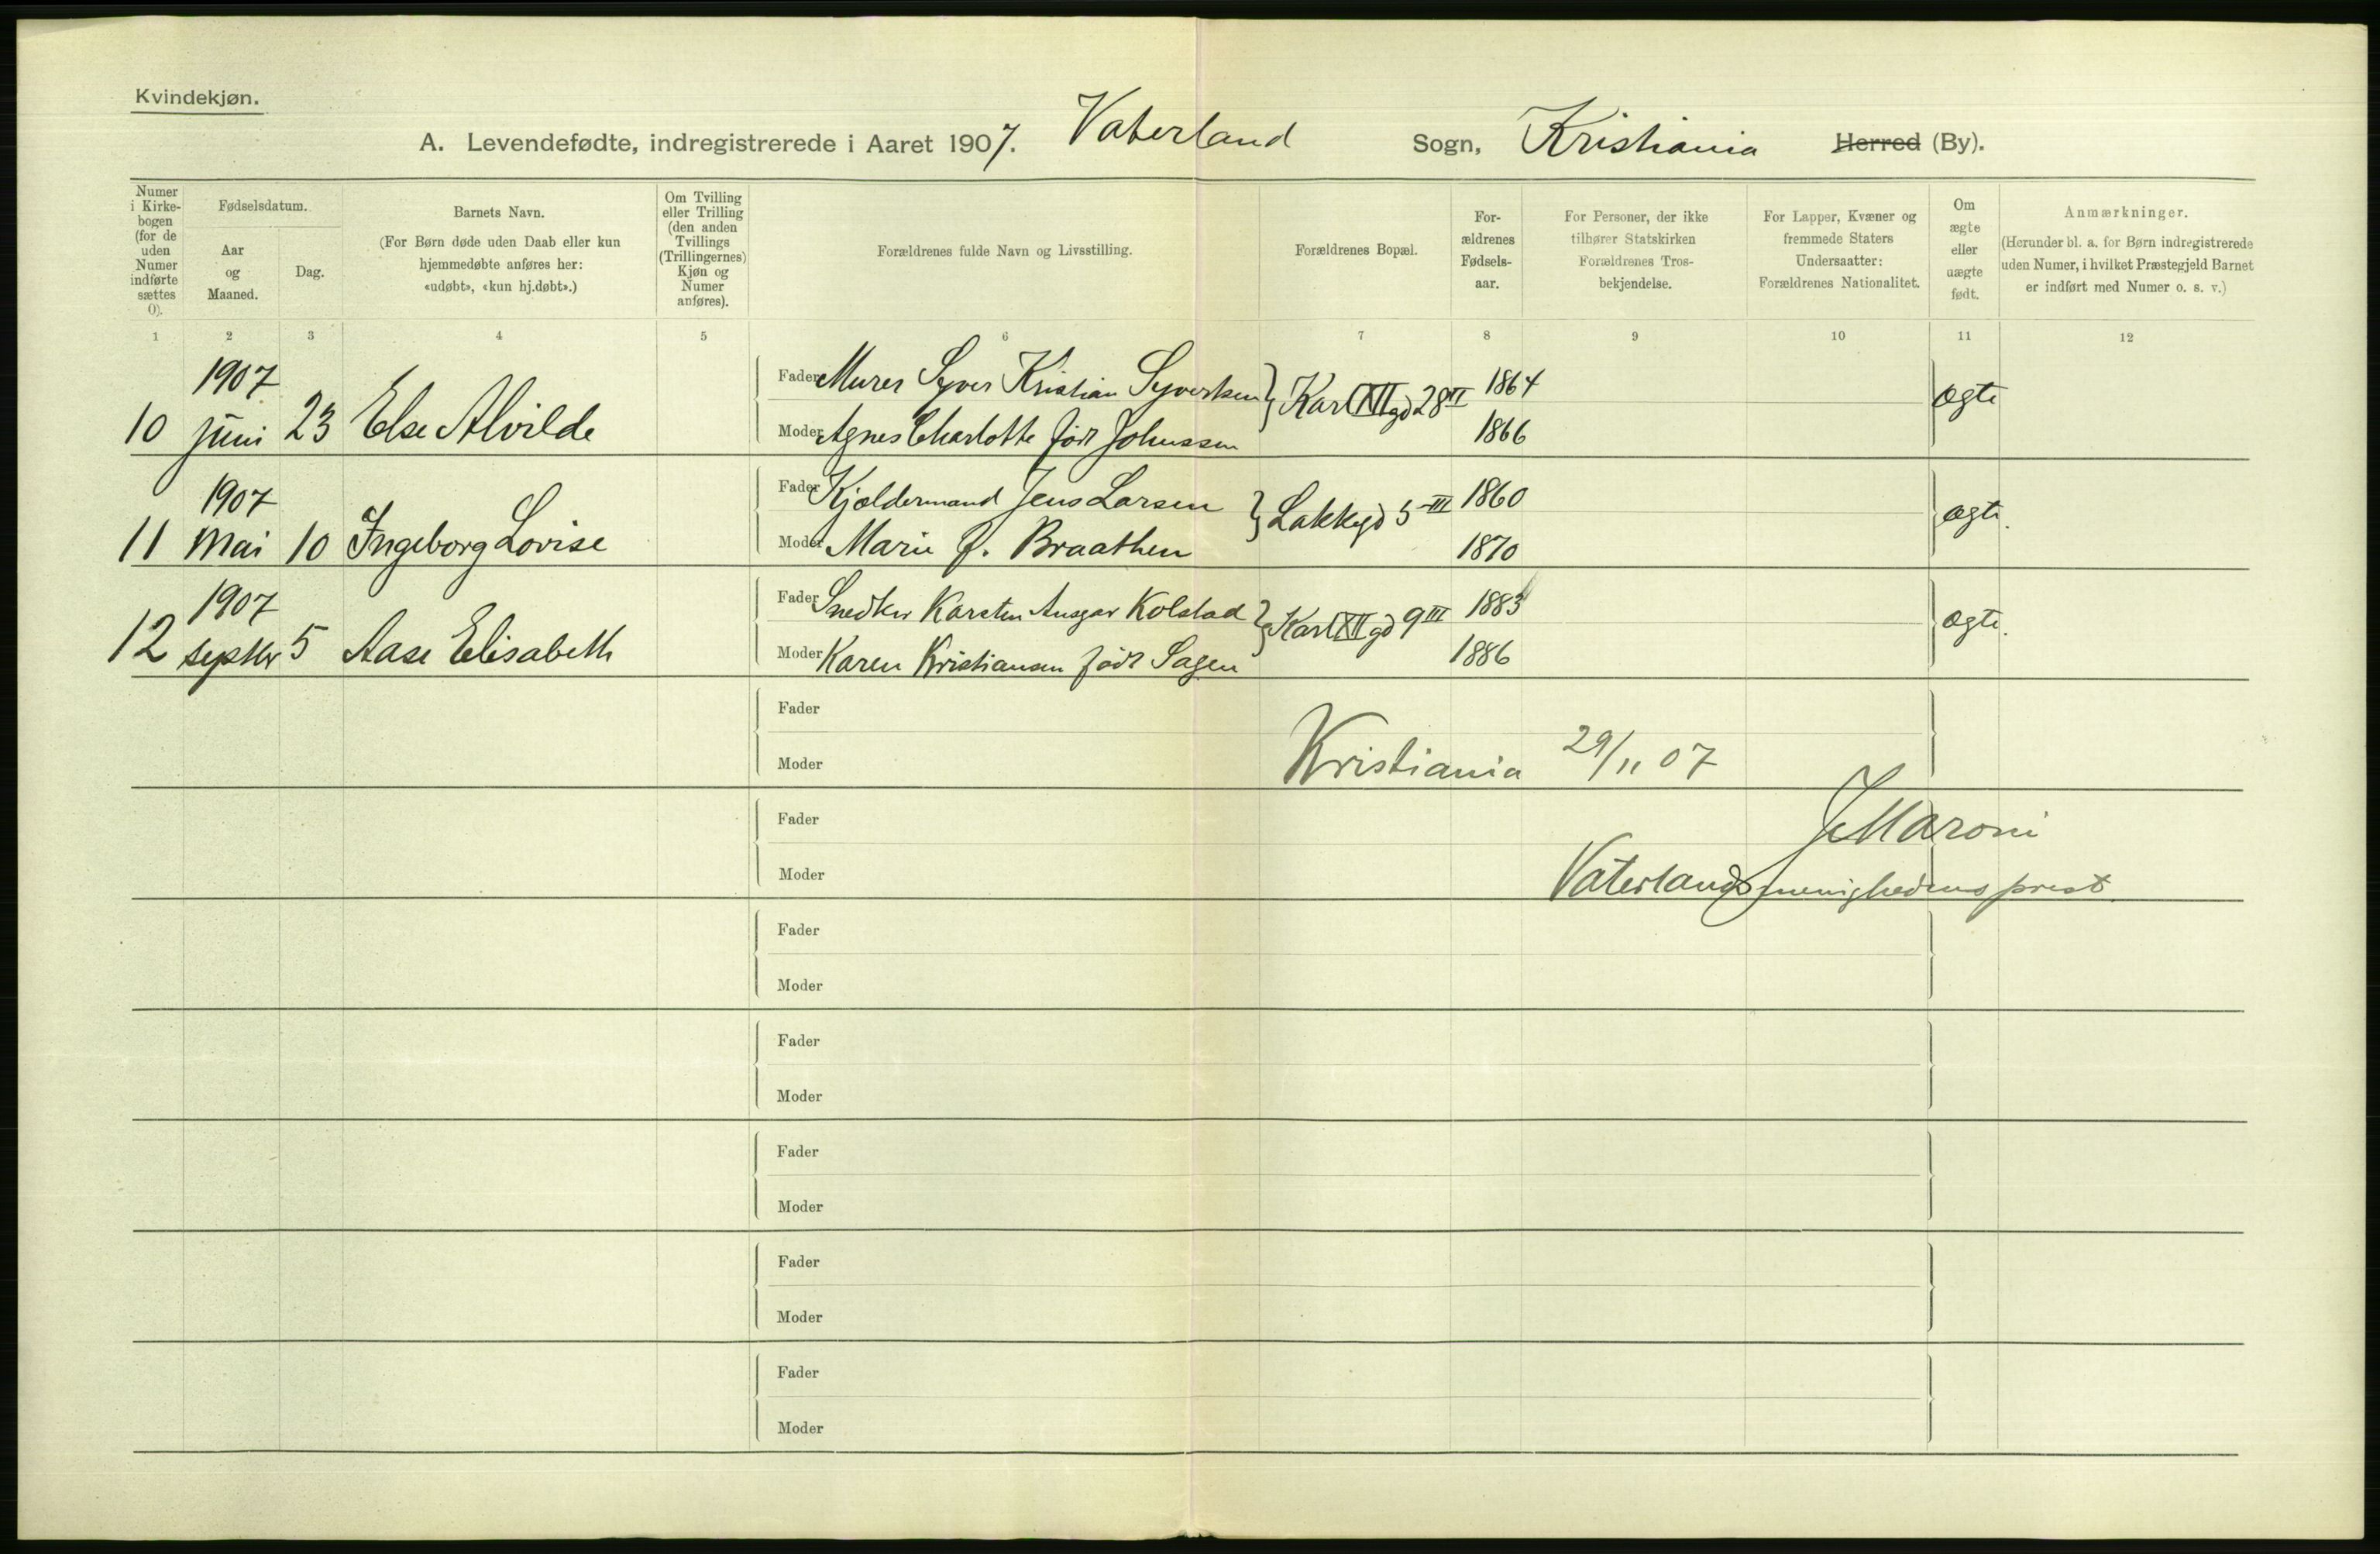 Kvindekjøn.
A. Levendefødte, indregistrerede i Aaret 1907. Vaterland Sogn, Kristiania Herred (By).
Numer i Kirke-bogen (for de uden Numer indførte sættes 0).
Fødselsdatum.
Aar og Maaned.
Dag.
Barnets Navn.
(For Børn døde uden Daab eller kun hjemmedøbte anføres her: «udøbt», «kun hj.døbt».)
Om Tvilling eller Trilling (den anden Tvillings (Trillingernes) Kjøn og Numer anføres).
Forældrenes fulde Navn og Livsstilling.
Forældrenes Bopæl.
For-ældrenes Fødsels-aar.
For Personer, der ikke tilhører Statskirken Forældrenes Tros-bekjendelse.
For Lapper, Kvæner og fremmede Staters Undersaatter: Forældrenes Nationalitet.
Om ægte eller uægte født.
Anmærkninger.
(Herunder bl. a. for Børn indregistrerede uden Numer, i hvilket Præstegjeld Barnet er indført med Numer o. s. v.)
1 2 3 4 5 6 7 8 9 10 11 12
1907
Fader Murer Syver Kristian Syvertsen } Karl XII gd 28 II 1864 ægte
10 juni 23 Else Alvilde
Moder Agnes Charlotte født Johnssen 1866
1907
Fader Kjældermand Jens Larsen } Lakkegd 5 III 1860 ægte.
11 Mai 10 Ingeborg Lovise
Moder Marie f. Braathen 1870
1907
Fader Snedker Karsten Ansgar Kolstad } Karl XII gd 9 III 1883 ægte.
12 septbr 5 Aase Elisabeth
Moder Karen Kristiansen født Sagen 1886
Fader
Moder
Kristiania 29/11 07
Fader
J Maroni
Moder
Vaterlands menigheds prest.
Fader
Moder
Fader
Moder
Fader
Moder
Fader
Moder
Fader
Moder